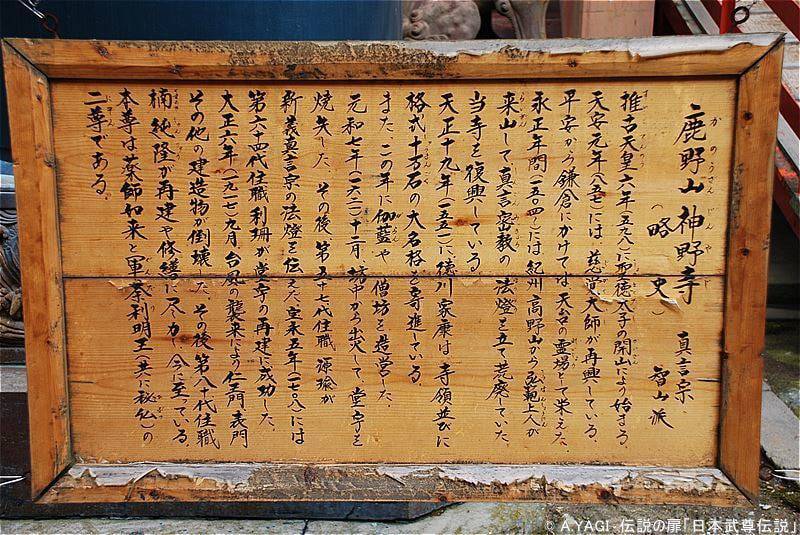 鹿野山神野寺
かのうざん じんやじ
(略史)
真言宗
智山派
推古天皇六年(五九八)に聖徳太子の開山により始まる。
天安元年(八五七)には、慈覚大師が再興している。
平安から鎌倉にかけては天台の霊場として栄えた。
永正年間(一五〇四)には紀州高野山から弘範上人が
来山して真言密教の法燈を立て荒廃していた
当寺を復興している。
天正十九年(一五九一)に、徳川家康は寺領並びに
格式十万石の大名格を寄進している。
また、この年に伽藍や僧坊を造営した。
元和七年(一六二一)十二月、坊中から出火して堂宇を
焼失した。その後第五十七代住職 源瑜が
新義真言宗の法燈を伝えた。宝永五年(一七〇八)には
第六十四代住職利珊が堂宇の再建に成功した。
大正六年(一九一七)九月台風の襲来により仁王門、表門
その他の建造物が倒壊した。その後第八十代住職
楠純隆が再建や修繕に尽力し今に至っている。
本尊は薬師如来と軍荼利明王(共に秘仏)の
二尊である。
© A.YAGI - 伝説の扉「日本武尊伝説」